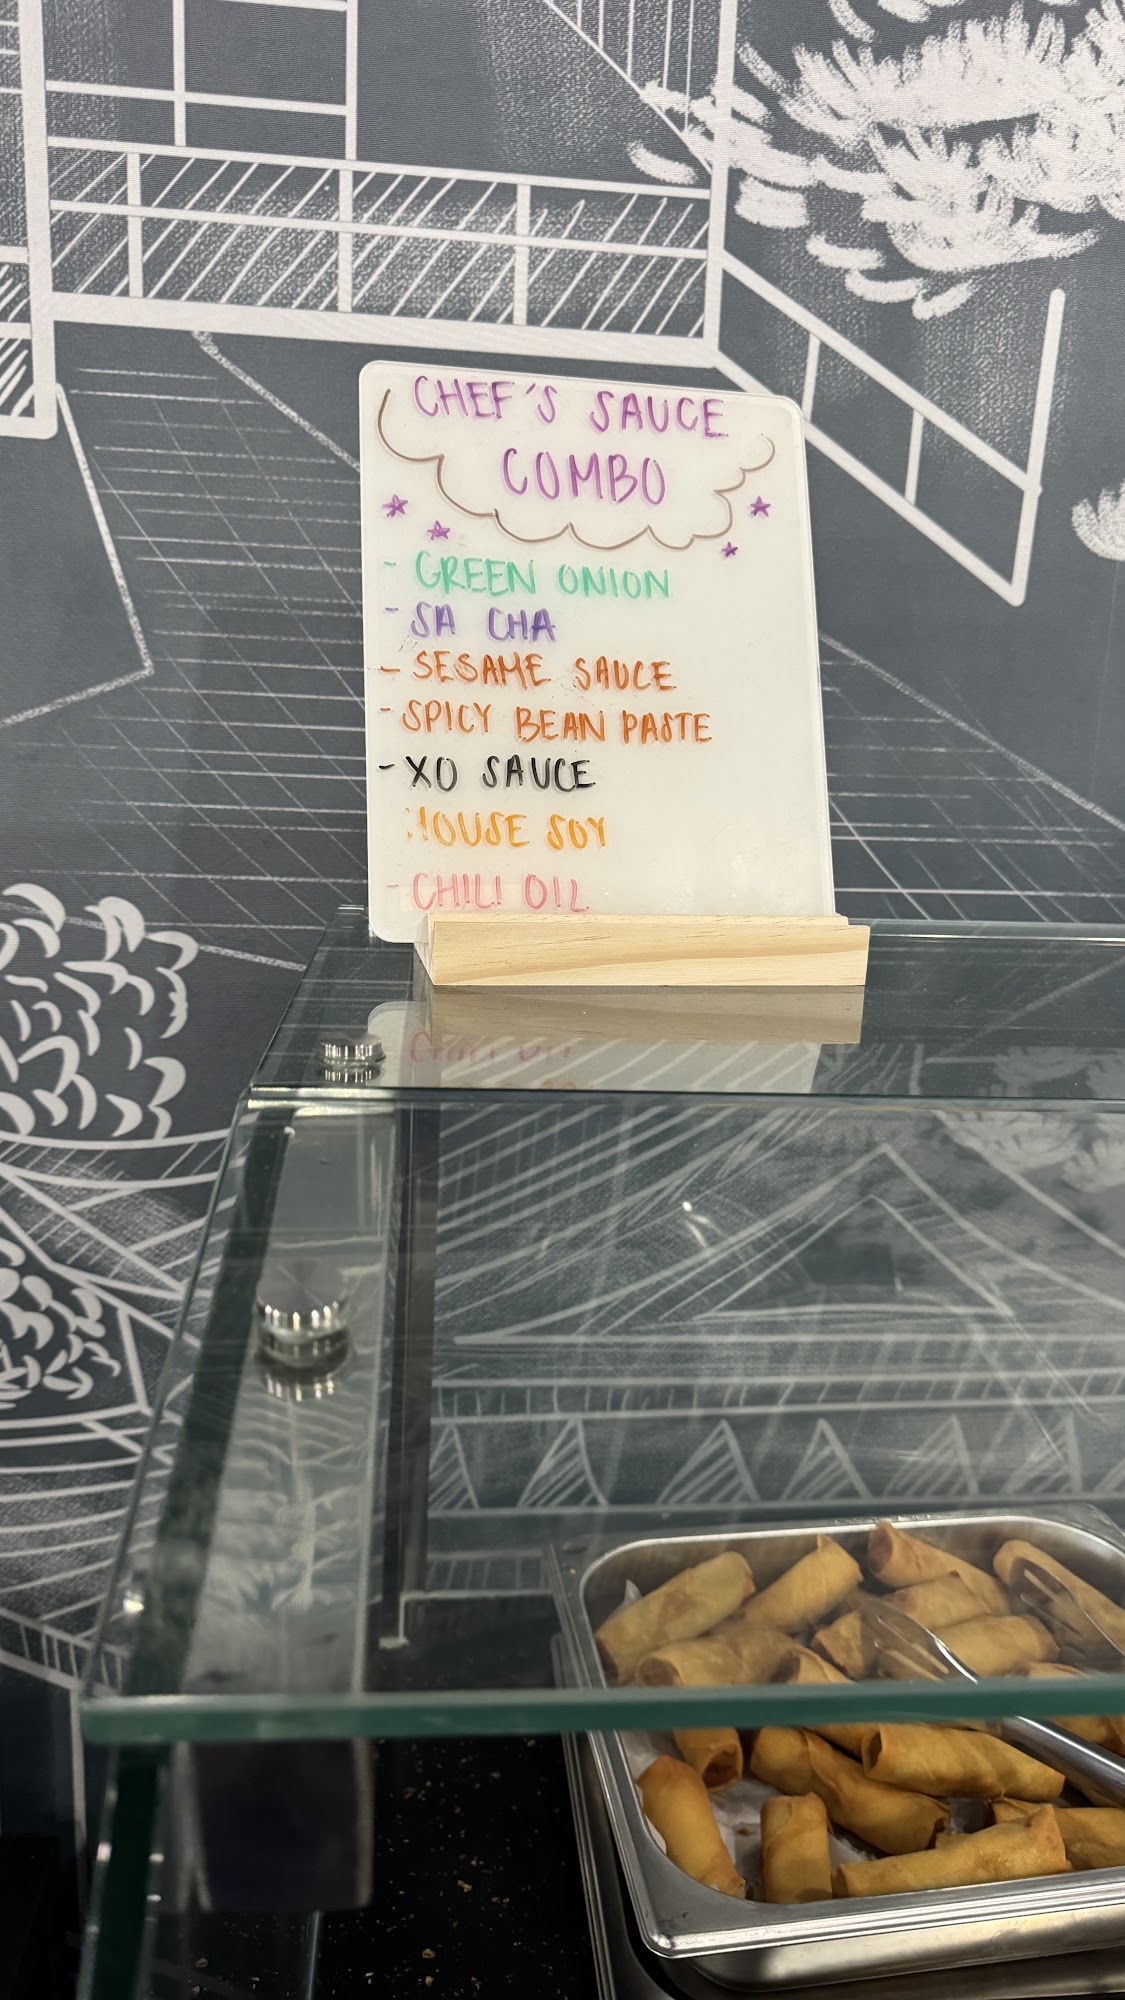 CHEF'S SAUCE
COMBO
- GREEN ONION
- SA CHA
- SESAME SAUCE
- SPICY BEAN PASTE
- XO SAUCE
HOUSE SOY
- CHILI OIL